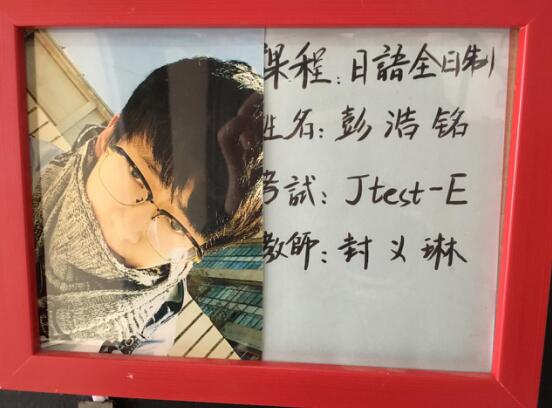 課程：日語全日制
姓名：彭浩铭
考試：Jtest-E
教師：封义琳